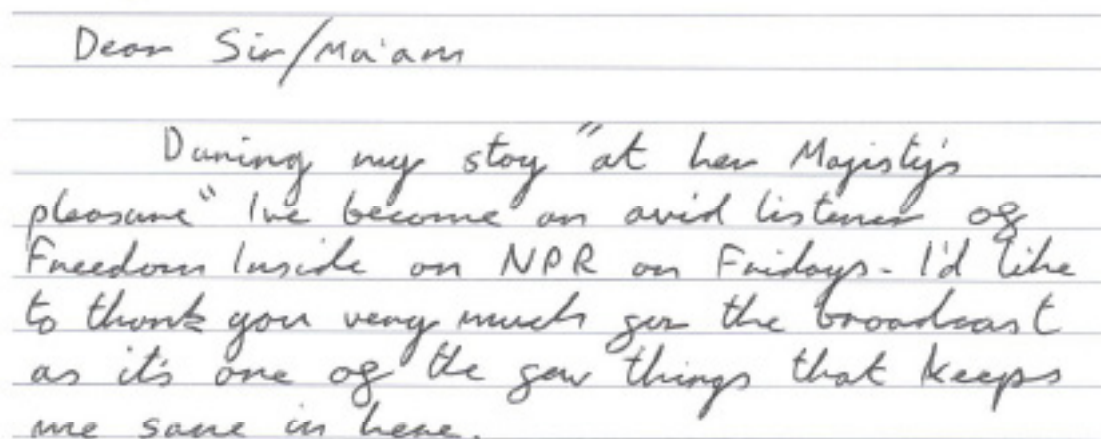 Dear Sir/Ma'am
During my stay "at her Majisty's
pleasure" I've become an avid listener of
Freedom Inside on NPR on Fridays. I'd like
to thank you very much for the broadcast
as it's one of the few things that keeps
me sane in here.